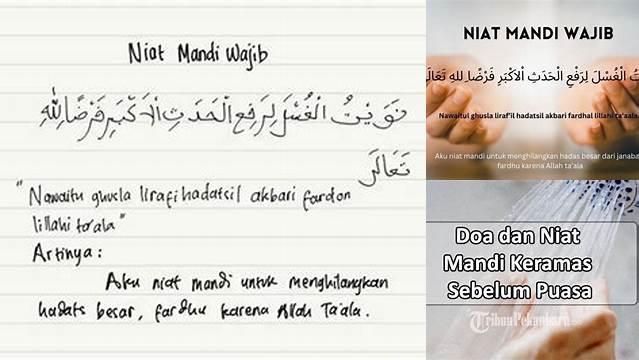 Niat Mandi Wajib
نَوَيْتُ الْغُسْلَ لِرَفْعِ الْحَدَثِ الْاَكْبَرِ فَرْضًا لِلّٰهِ
تَعَالَى
"Nawaitu ghusla lirafi hadatsil akbari fardon
lillahi ta'ala"
Artinya :
Aku niat mandi untuk menghilangkan
hadats besar, fardhu karena Allah Ta'ala.
NIAT MANDI WAJIB
تُ الْغُسْلَ لِرَفْعِ الْحَدَثِ الْاَكْبَرِ فَرْضًا لِلهِ تَعَالَ
Nawaitul ghusla liraf'il hadatsil akbari fardhal lillahi ta'aala.
Aku niat mandi untuk menghilangkan hadas besar dari janaba
fardhu karena Allah ta'ala
Doa dan Niat
Mandi Keramas
Sebelum Puasa
TribunPekanbaru.com